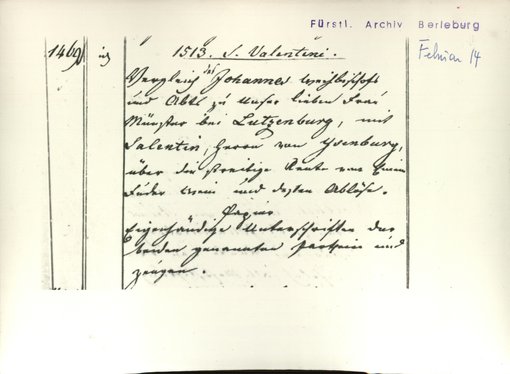 Fürstl. Archiv Berleburg
Februar 14
1469
1513. S. Valentini.
Vergleich des Johannes Weihbischofs
und Abts zu Unser lieben Frau
Münster bei Lutzenburg, mit
Salentin, Herrn von Ysenburg,
über die streitige Rente von Einem
Fuder Wein und deßen Ablöse.
Papier
Eigenhändige Unterschriften der
beiden genannten Partheien und
Zeugen.